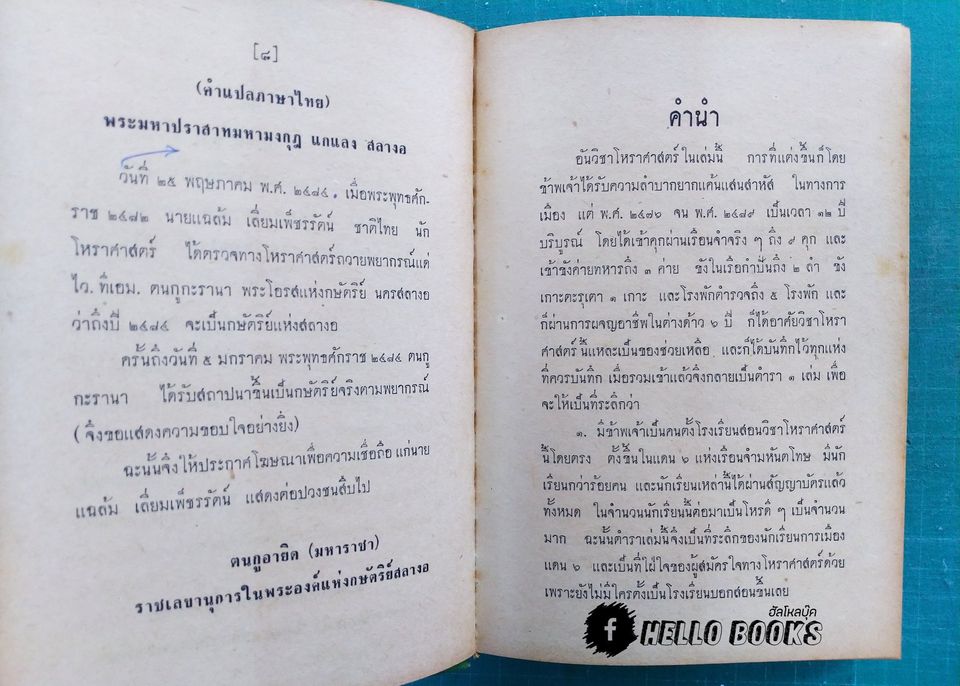 [๘]
(คำแปลภาษาไทย)
พระมหาปราสาทมหามงกุฎ แกแลง สลางอ
วันที่ ๒๕ พฤษภาคม พ.ศ. ๒๔๘๔, เมื่อพระพุทธศัก-
ราช ๒๔๘๒ นายแฉล้ม เลี่ยมเพ็ชรรัตน์ ชาติไทย นัก
โหราศาสตร์ ได้ตรวจทางโหราศาสตร์ถวายพยากรณ์แด่
ไว. ที่เอม. ตนกูกะรานา พระโอรสแห่งกษัตริย์ นครสลางอ
ว่าถึงปี ๒๔๘๔ จะเป็นกษัตริย์แห่งสลางอ
ครั้นถึงวันที่ ๕ มกราคม พระพุทธศักราช ๒๔๘๔ ตนกู
กะรานา ได้รับสถาปนาขึ้นเป็นกษัตริย์จริงตามพยากรณ์
(จึงขอแสดงความขอบใจอย่างยิ่ง)
ฉะนั้นจึงให้ประกาศโฆษณาเพื่อความเชื่อถือ แก่นาย
แฉล้ม เลี่ยมเพ็ชรรัตน์ แสดงต่อปวงชนสืบไป
ตนกูอายิด (มหาราชา)
ราชเลขานุการในพระองค์แห่งกษัตริย์สลางอ
คำนำ
อันวิชาโหราศาสตร์ในเล่มนี้ การที่แต่งขึ้นก็โดย
ข้าพเจ้าได้รับความลำบากยากแค้นแสนสาหัส ในทางการ
เมือง แต่ พ.ศ. ๒๔๗๖ จน พ.ศ. ๒๔๘๙ เป็นเวลา ๑๒ ปี
บริบูรณ์ โดยได้เข้าคุกผ่านเรือนจำจริง ๆ ถึง ๙ คุก และ
เข้าขังค่ายทหารถึง ๓ ค่าย ขังในเรือกำปั่นถึง ๒ ลำ ขัง
เกาะตะรุเตา ๑ เกาะ และโรงพักตำรวจถึง ๕ โรงพัก และ
ก็ผ่านการผจญอาชีพในต่างด้าว ๖ ปี ก็ได้อาศัยวิชาโหรา
ศาสตร์นี้แหละเป็นของช่วยเหลือ และก็ได้บันทึกไว้ทุกแห่ง
ที่ควรบันทึก เมื่อรวมเข้าแล้วจึงกลายเป็นตำรา ๑ เล่ม เพื่อ
จะให้เป็นที่ระลึกว่า
๑. มีข้าพเจ้าเป็นคนตั้งโรงเรียนสอนวิชาโหราศาสตร์
นี้โดยตรง ตั้งขึ้นในแดน ๖ แห่งเรือนจำมหันตโทษ มีนัก
เรียนกว่าร้อยคน และนักเรียนเหล่านี้ได้ผ่านสัญญาบัตรแล้ว
ทั้งหมด ในจำนวนนักเรียนนี้ต่อมาเป็นโหรดี ๆ เป็นจำนวน
มาก ฉะนั้นตำราเล่มนี้จึงเป็นที่ระลึกของนักเรียนการเมือง
แดน ๖ และเป็นที่ใฝ่ใจของผู้สมัครใจทางโหราศาสตร์ด้วย
เพราะยังไม่มีใครตั้งเป็นโรงเรียนบอกสอนขึ้นเลย
ฮัลโหลบุ๊ค
f HELLO BOOKS